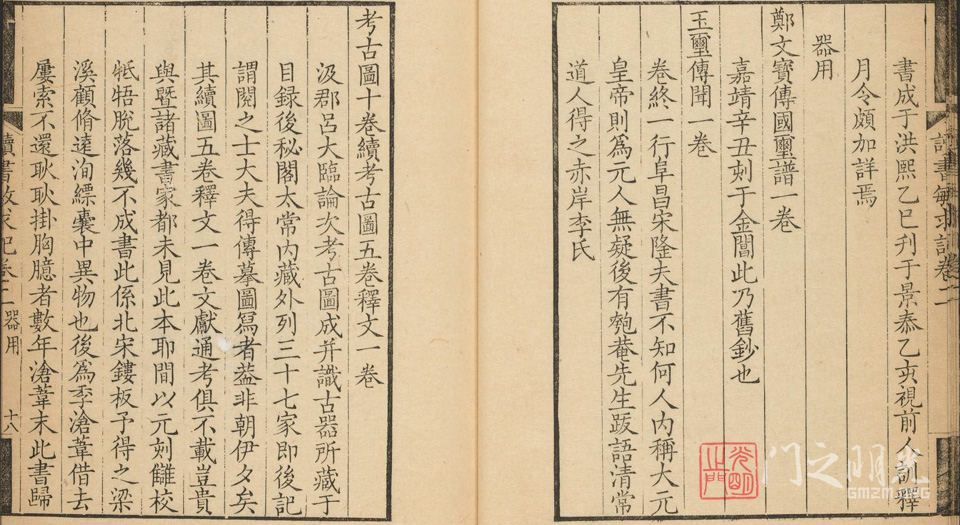 書成于洪熙乙巳刋于景泰乙亥視前人訓釋
月令頗加詳焉
器用
鄭文寶傳國璽譜一卷
嘉靖辛丑刺于金閶此乃舊鈔也
玉璽傳聞一卷
卷終一行阜昌宋隆夫書不知何人内稱大元
皇帝則爲元人無疑後有匏菴先生跋語清常
道人得之赤岸李氏
考古圖十卷續考古圖五卷釋文一卷
汲郡呂大臨論次考古圖成并識古器所藏于
目録後秘閣太常内藏外列三十七家即後記
謂閱之士大夫得傳摹圖寫者葢非朝伊夕矣
其續圖五卷釋文一卷文獻通考俱不載豈貴
與暨諸藏書家都未見此本耶間以元刻讎校
牴牾脫落幾不成書此係北宋鏤板予得之梁
溪顧脩遠洵縹囊中異物也後爲季滄葦借去
屢索不還耿耿掛胸臆者數年滄葦末此書歸
讀書敏求記卷二
讀書敏求記卷二 器用
十八
光明之门
GMZM.ORG